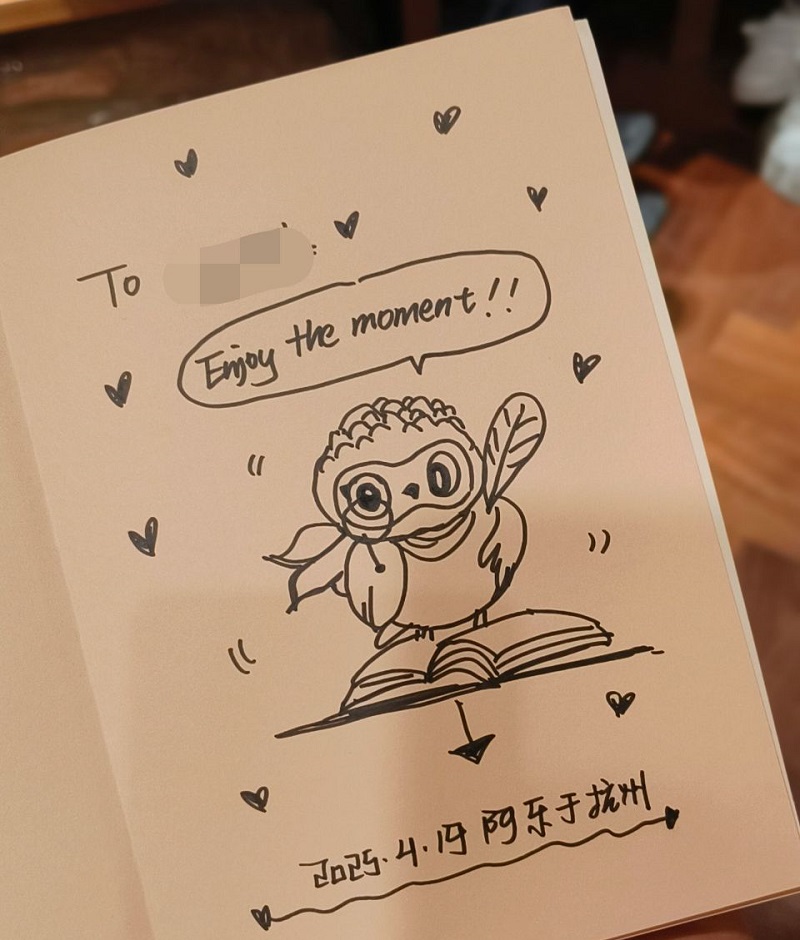 To :
Enjoy the moment!!
2025.4.19 阿乐于杭州